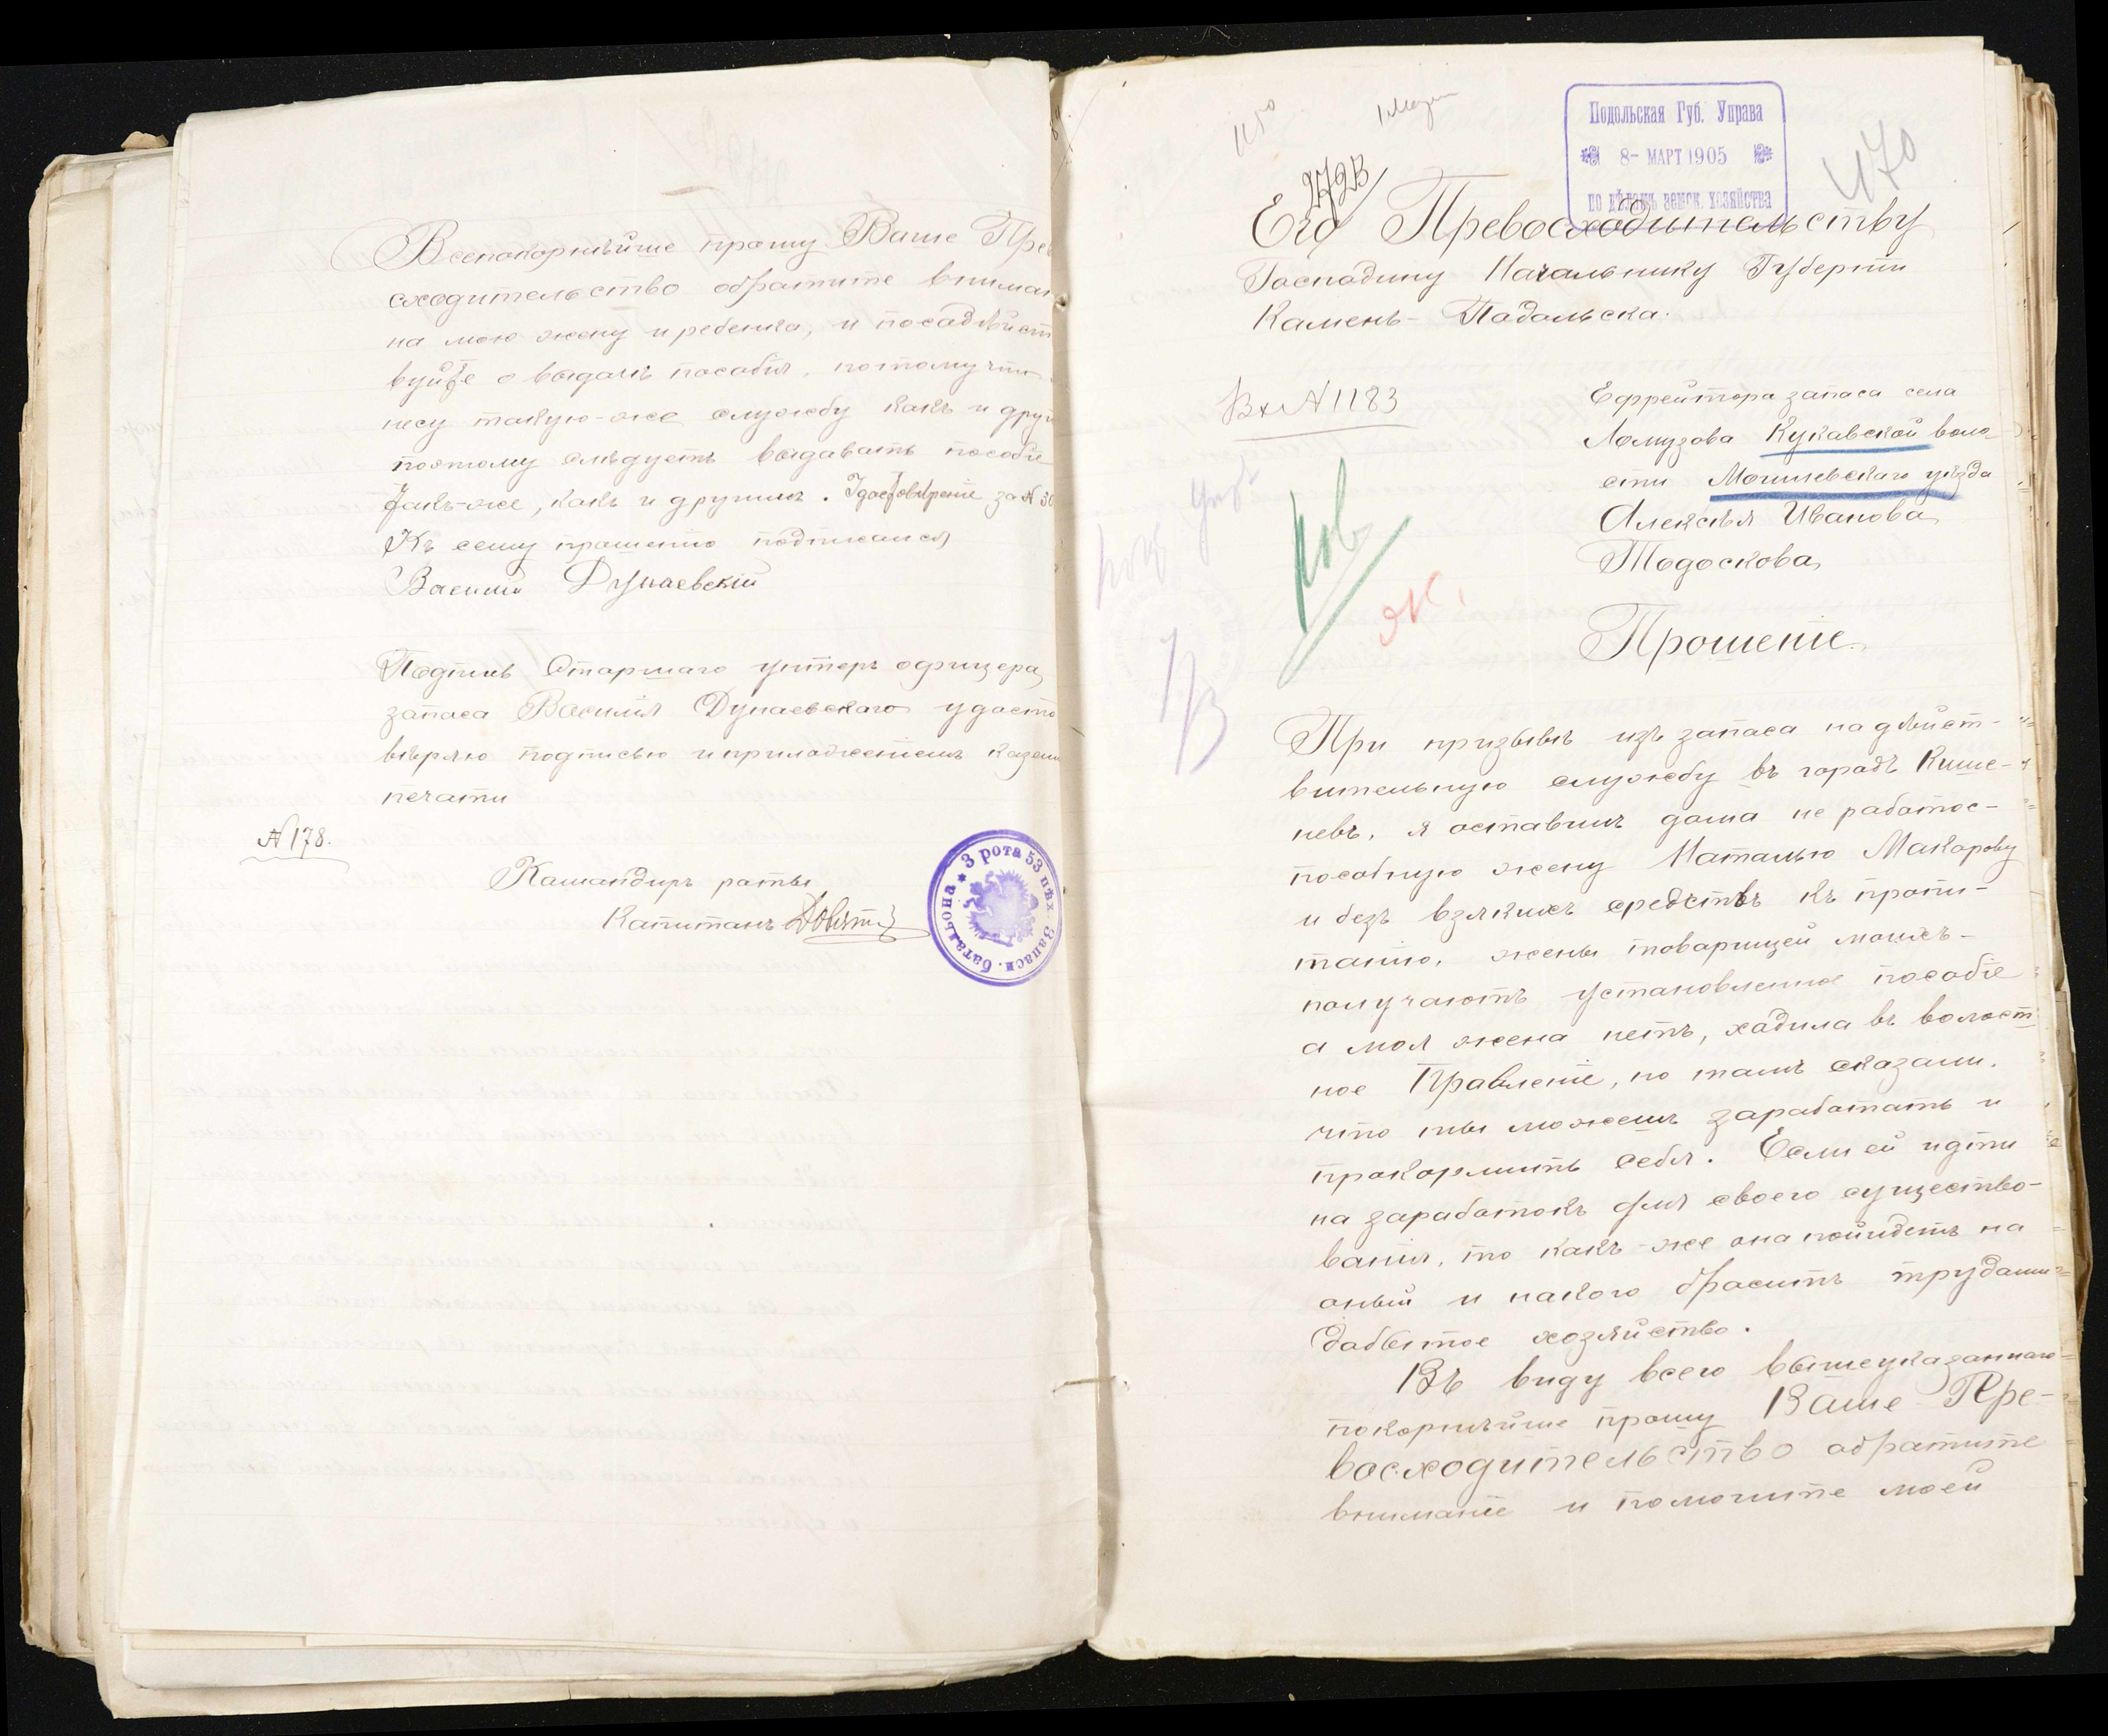 Всепокорнѣйше прошу Ваше Прев
сходительство обратите вниман
на мою жену и ребенка, и посадѣйст
вуйте о выдачѣ пособія, потому что
несу такую-же службу какъ и друг
поэтому слѣдуетъ выдавать пособіе
такъ-же, какъ и другимъ. Удостовѣреніе за № 30
Къ сему прошенію подписался
Василій Дунаевскій
Подпись Старшаго унтеръ офицера
запаса Василія Дунаевскаго удосто
вѣряю подписью и приложеніемъ казен
печати
№ 178.
Камандиръ роты
Капитанъ
3 рота 53 пѣх. Запасн. баталіона
Подольская Губ. Управа
8- МАРТ 1905
по дѣламъ земск. хозяйства
470
Его Превосходительству
Гаспадину Начальнику Губерніи
Камень-Падальска.
Вх № 1183
Ефрейтора запаса села
Ломузова Кукавской воло-
сти Могилевскаго уѣзда
Алексѣя Иванова
Тодоскова
Прошеніе.
При призывѣ изъ запаса на дѣйст-
вительную службу въ городѣ Кише-
невъ, я оставилъ дома не работос-
пособную жену Наталью Макарову
и безъ взякихъ средствъ къ пропи-
танію, жены товарищей моихъ-
получаютъ установленное пособіе
а моя жена нетъ, хадила въ волост
ное Правленіе, но тамъ сказали,
что ты можешъ заработать и
пракормить себя. Если ей идти
на заработокъ для своего существо-
ванія, то какъ-же она пойидетъ на
оный и накого браситъ трудами
дабытое хозяйство.
Въ виду всего вышеуказаннаго
покорнѣйше прошу Ваше Пре-
восходительство абратите
вниманіе и помогите моей